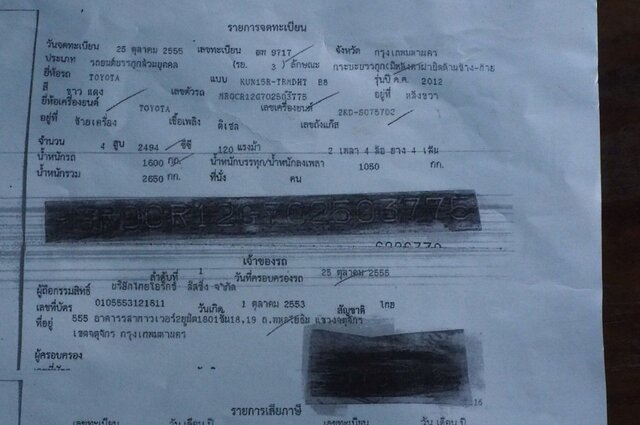 รายการจดทะเบียน
วันจดทะเบียน 25 ตุลาคม 2555 เลขทะเบียน ฒท 9717 จังหวัด กรุงเทพมหานคร
ประเภท รถยนต์บรรทุกส่วนบุคคล (รย. 3) ลักษณะ กระบะบรรทุก(มีหลังคาฝาปิดด้านข้าง-ท้าย
ยี่ห้อรถ TOYOTA แบบ KUN15R-TRMDHT B8 รุ่นปี ค.ศ. 2012
สี ขาว แดง เลขตัวรถ MR0CR12G702503775 อยู่ที่ หลังขวา
ยี่ห้อเครื่องยนต์ TOYOTA เลขเครื่องยนต์ 2KD-S075702
อยู่ที่ ซ้ายเครื่อง เชื้อเพลิง ดีเซล เลขถังแก๊ส
จำนวน 4 สูบ 2494 ซีซี 120 แรงม้า 2 เพลา 4 ล้อ ยาง 4 เส้น
น้ำหนักรถ 1600 กก. น้ำหนักบรรทุก/น้ำหนักลงเพลา 1050 กก.
น้ำหนักรวม 2650 กก. ที่นั่ง คน
MR0CR12G702503775
เจ้าของรถ
ลำดับที่ 1 วันที่ครอบครองรถ 25 ตุลาคม 2555
ผู้ถือกรรมสิทธิ์ บริษัทไทยโอริกซ์ ลีสซิ่ง จำกัด
เลขที่บัตร 0105553121811 วันเกิด 1 ตุลาคม 2553 สัญชาติ ไทย
ที่อยู่ 555 อาคารรสาทาวเวอร์2ยูนิต1801ชั้น18,19 ถ.พหลโยธิน แขวงจตุจักร
เขตจตุจักร กรุงเทพมหานคร
ผู้ครอบครอง
16
รายการเสียภาษี
เลขทะเบียน วัน เดือน ปี เลขทะเบียน วัน เดือน ปี